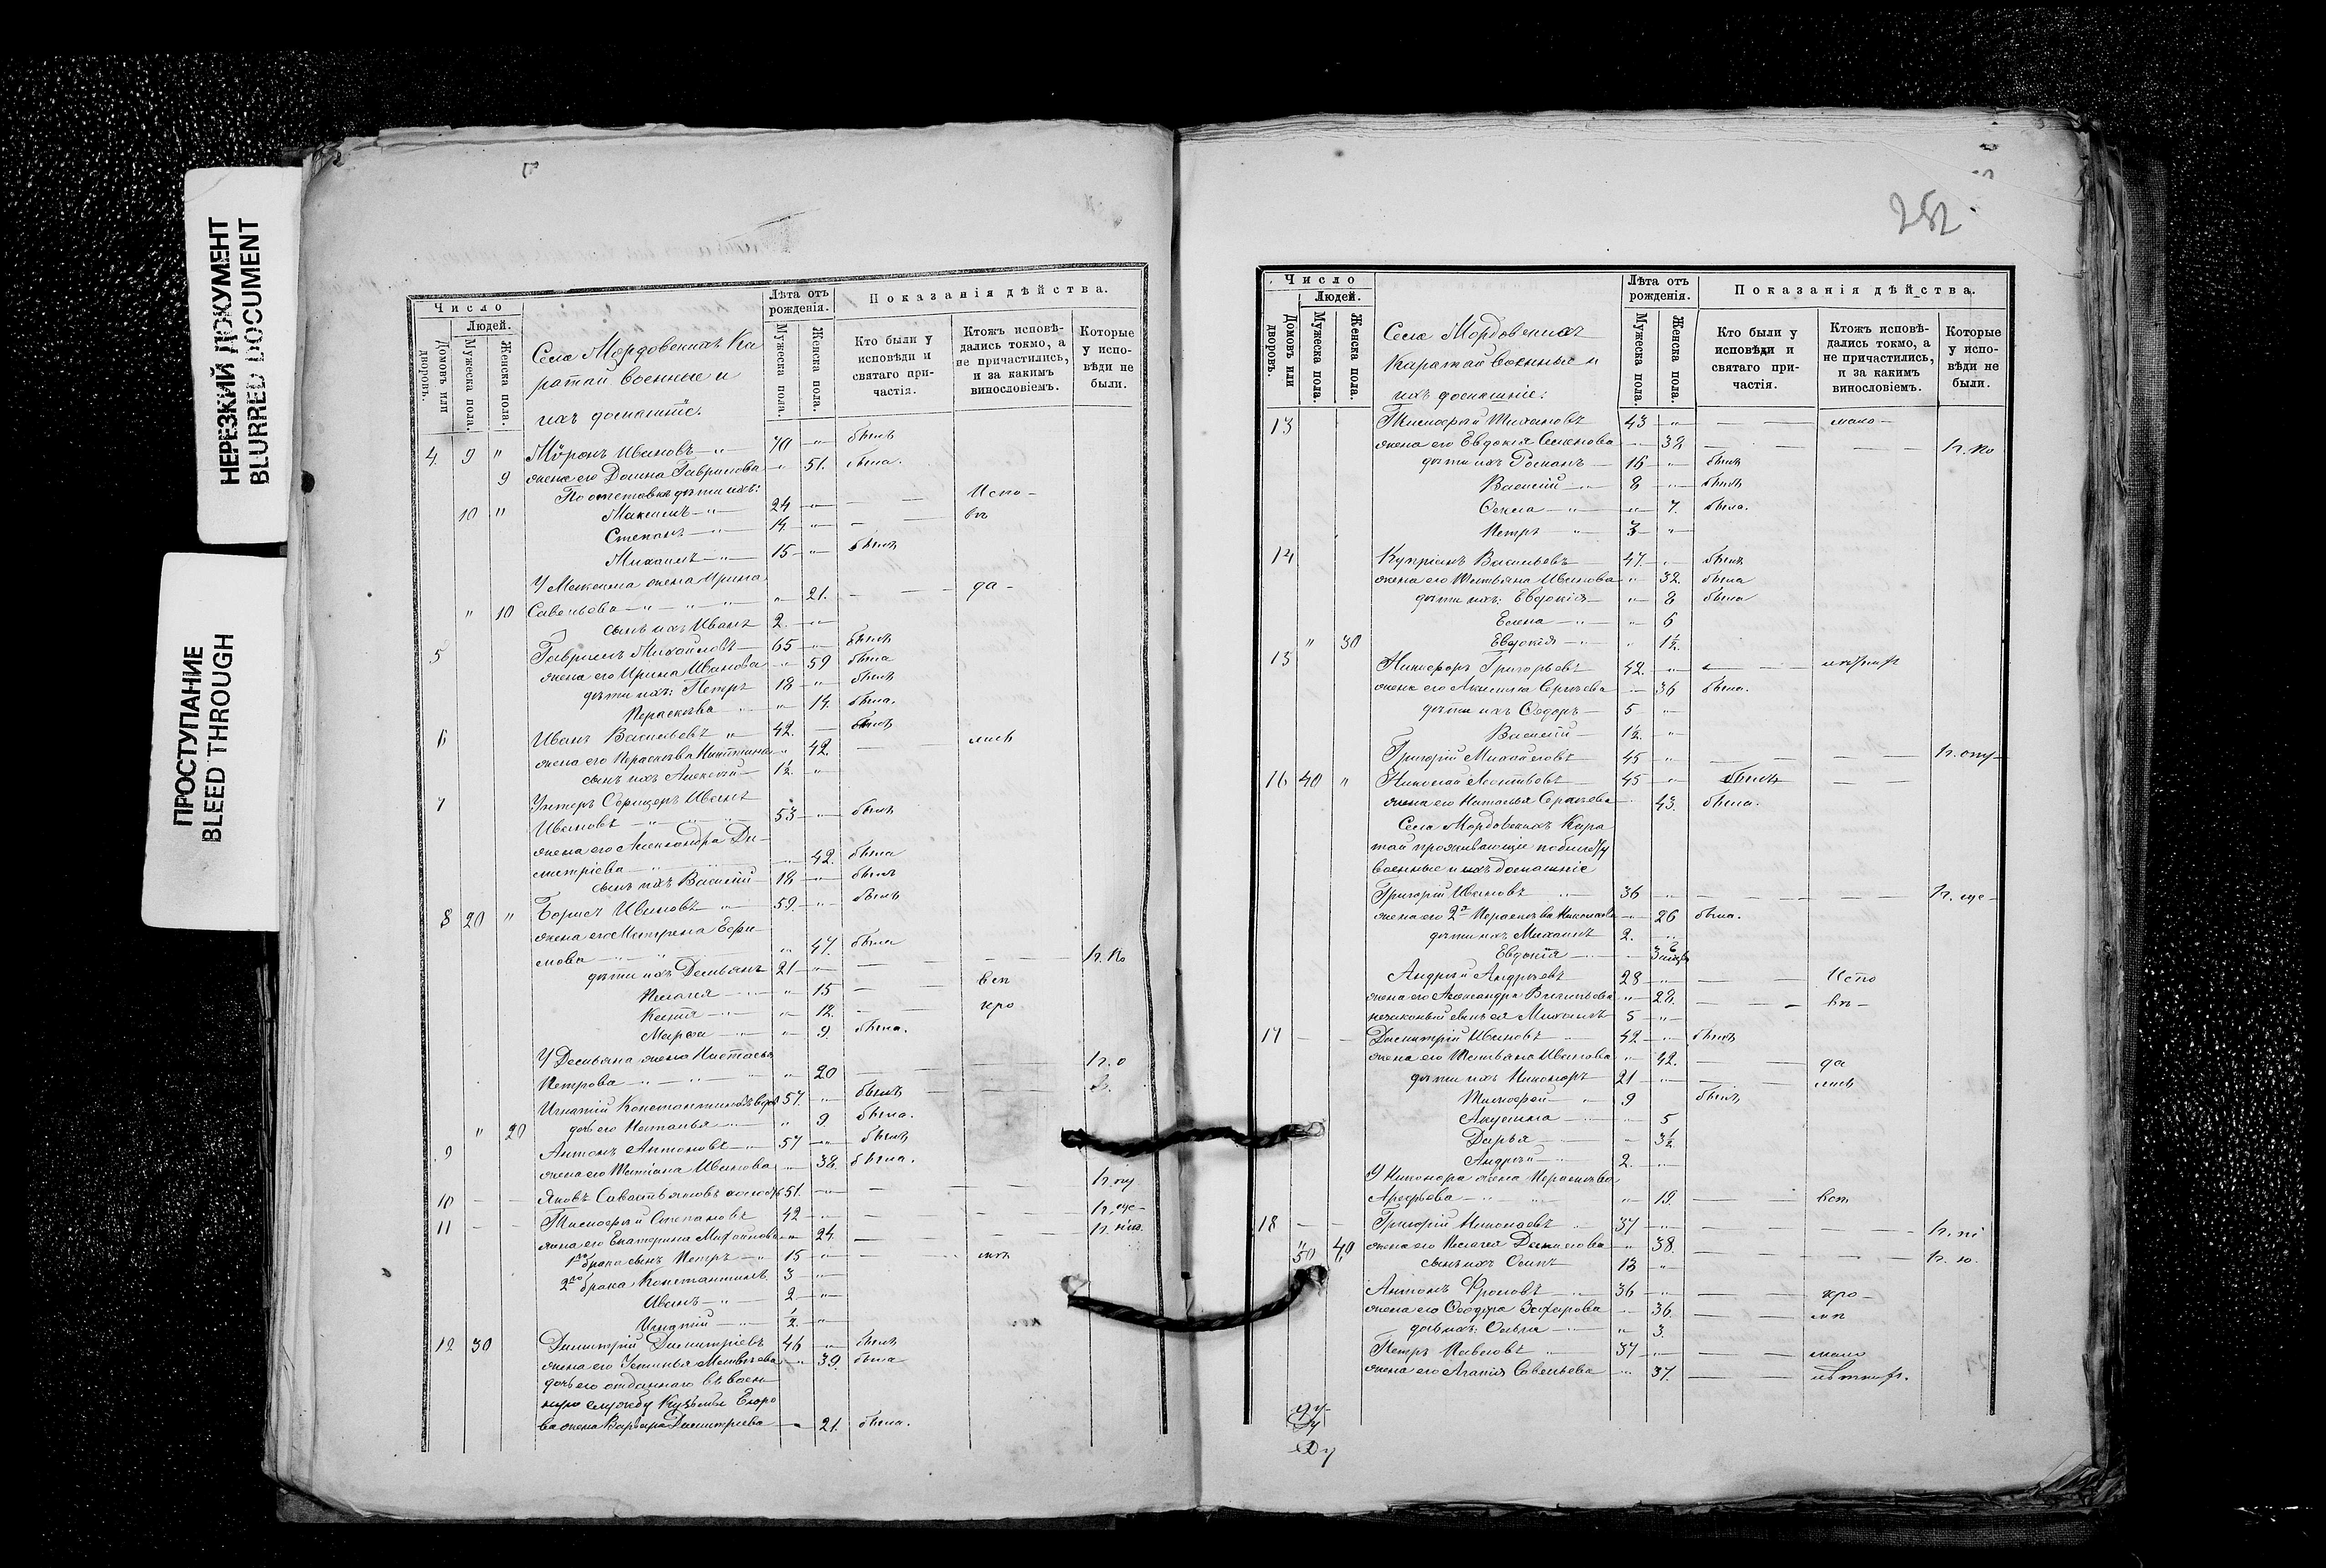 НЕРЕЗКИЙ ДОКУМЕНТ
BLURRED DOCUMENT
ПРОСТУПАНИЕ
BLEED THROUGH
Число
Людей.
Домовъ или дворовъ.
Мужеска пола.
Женска пола.
Села Мордовскихъ Ка
ратай военные и
ихъ домашніе.
Лѣта отъ рожденія.
Мужеска пола.
Женска пола.
Показанія дѣйства.
Кто были у исповѣди и святаго причастія.
Ктожъ исповѣдались токмо, а не причастились, и за какимъ винословіемъ.
Которые у исповѣди не были.
4. 9 " Мѵронъ Ивановъ 70 " былъ
9 жена его Домна Гаврилова " 51. была.
По отставкѣ дѣти ихъ:
10 " Максимъ 24 " — Испо-
Степанъ 19 " — въ
Михаилъ 15 " былъ
У Максима жена Ирина
" 10 Савельева " 21. — да-
сынъ ихъ Иванъ 2. "
5 Гавриилъ Михайловъ 65 " былъ
жена его Ирина Иванова " 59 была
дѣти ихъ: Петръ 18 " былъ
Параскева " 14. была.
6 Иванъ Васильевъ 42. — былъ
жена его Параскева " 42. —
сынъ ихъ Алексѣй 1½. "
7 Унтеръ Офицеръ Иванъ
Ивановъ 53 " былъ
жена его Александра Ди-
митріева 42. была
сынъ ихъ Василій 18 " былъ
8 20 " Борисъ Ивановъ 59. " былъ
жена его Матрена Ефи-
мова " 47. была
дѣти ихъ Демьянъ 21 " — п. ко
Пелагея " 15 —
Ксенія " 12. —
Марѳа " 9. была.
У Демьяна жена Настасья
Петрова " 20 — п. о
Игнатій Константиновъ вдов 57. " былъ
" 20 дочь его Наталья " 9. была.
9 Антонъ Антоновъ 57 " былъ
жена его Татіана Иванова " 38. была.
10 Яковъ Савастьяновъ холостъ 51. —
11 Тимоѳей Степановъ 42 —
жена его Екатерина Михайлова " 24. —
1го брака сынъ Петръ 15 "
2го брака Константинъ 3 "
Иванъ 2. "
Игнатій ½. "
12 30 Димитрій Димитріевъ 46 " былъ
жена его Устинья Матвѣева " 39. была
дочь его отданнаго въ воен-
ную службу Кузьмы Егоро
ва жена Варвара Димитріева 21. была.
252
Число
Людей.
Домовъ или дворовъ.
Мужеска пола.
Женска пола.
Села Мордовскихъ
Каратай военные и
ихъ домашніе:
Лѣта отъ рожденія.
Мужеска пола.
Женска пола.
Показанія дѣйства.
Кто были у исповѣди и святаго причастія.
Ктожъ исповѣдались токмо, а не причастились, и за какимъ винословіемъ.
Которые у исповѣди не были.
13 Тимоѳей Тихоновъ 43 " — мало-
жена его Евдокія Семенова 38 — п. ко
дѣти ихъ Романъ 16 " былъ
Василій 8 " былъ
Ѳекла " 7. была.
Петръ 3 "
14 Купріанъ Васильевъ 47. " былъ
жена его Татьяна Иванова " 32. была
дѣти ихъ: Евдокія " 8 была
Елена " 6
" 30 Евдокія " 1½.
15 Никифоръ Григорьевъ 42. " —
жена его Акилина Сергѣева 36 была.
дѣти ихъ Ѳедоръ 5 "
Василій 1½. "
Григорій Михайловъ 45 " —
16 40 " Николай Леонтьевъ 45 " былъ
жена его Наталья Сергѣева 43. была.
Села Мордовскихъ Кара
тай проживающіе по билету
военные и ихъ домашніе
Григорій Ивановъ 36 — п. ще-
жена его 2я Параскева Николаева " 26 была.
дѣти ихъ Михаилъ 2.
Евдокія
Андрей Андреевъ 28 " — Испо
жена его Александра Васильева " 28. — въ-
незаконный сынъ ея Михаилъ 5 "
17 Димитрій Ивановъ 42 " былъ
жена его Татьяна Иванова " 42. — да
дѣти ихъ Никаноръ 21 —
Тимоѳей 9 былъ
Акулина 5
Дарья 3½
Андрей 2.
У Никанора жена Параскева
Арефьева " 19. —
18 Григорій Николаевъ 37 —
" 50 40 жена его Пелагея Данилова " 38. —
сынъ ихъ Осипъ 13 " — п. ю.
Антонъ Фроловъ 36 " —
жена его Ѳеодора Захарова 36. —
дочь ихъ: Ольга " 3.
Петръ Павловъ 37 " — мало
жена его Агапія Савельева " 37. —